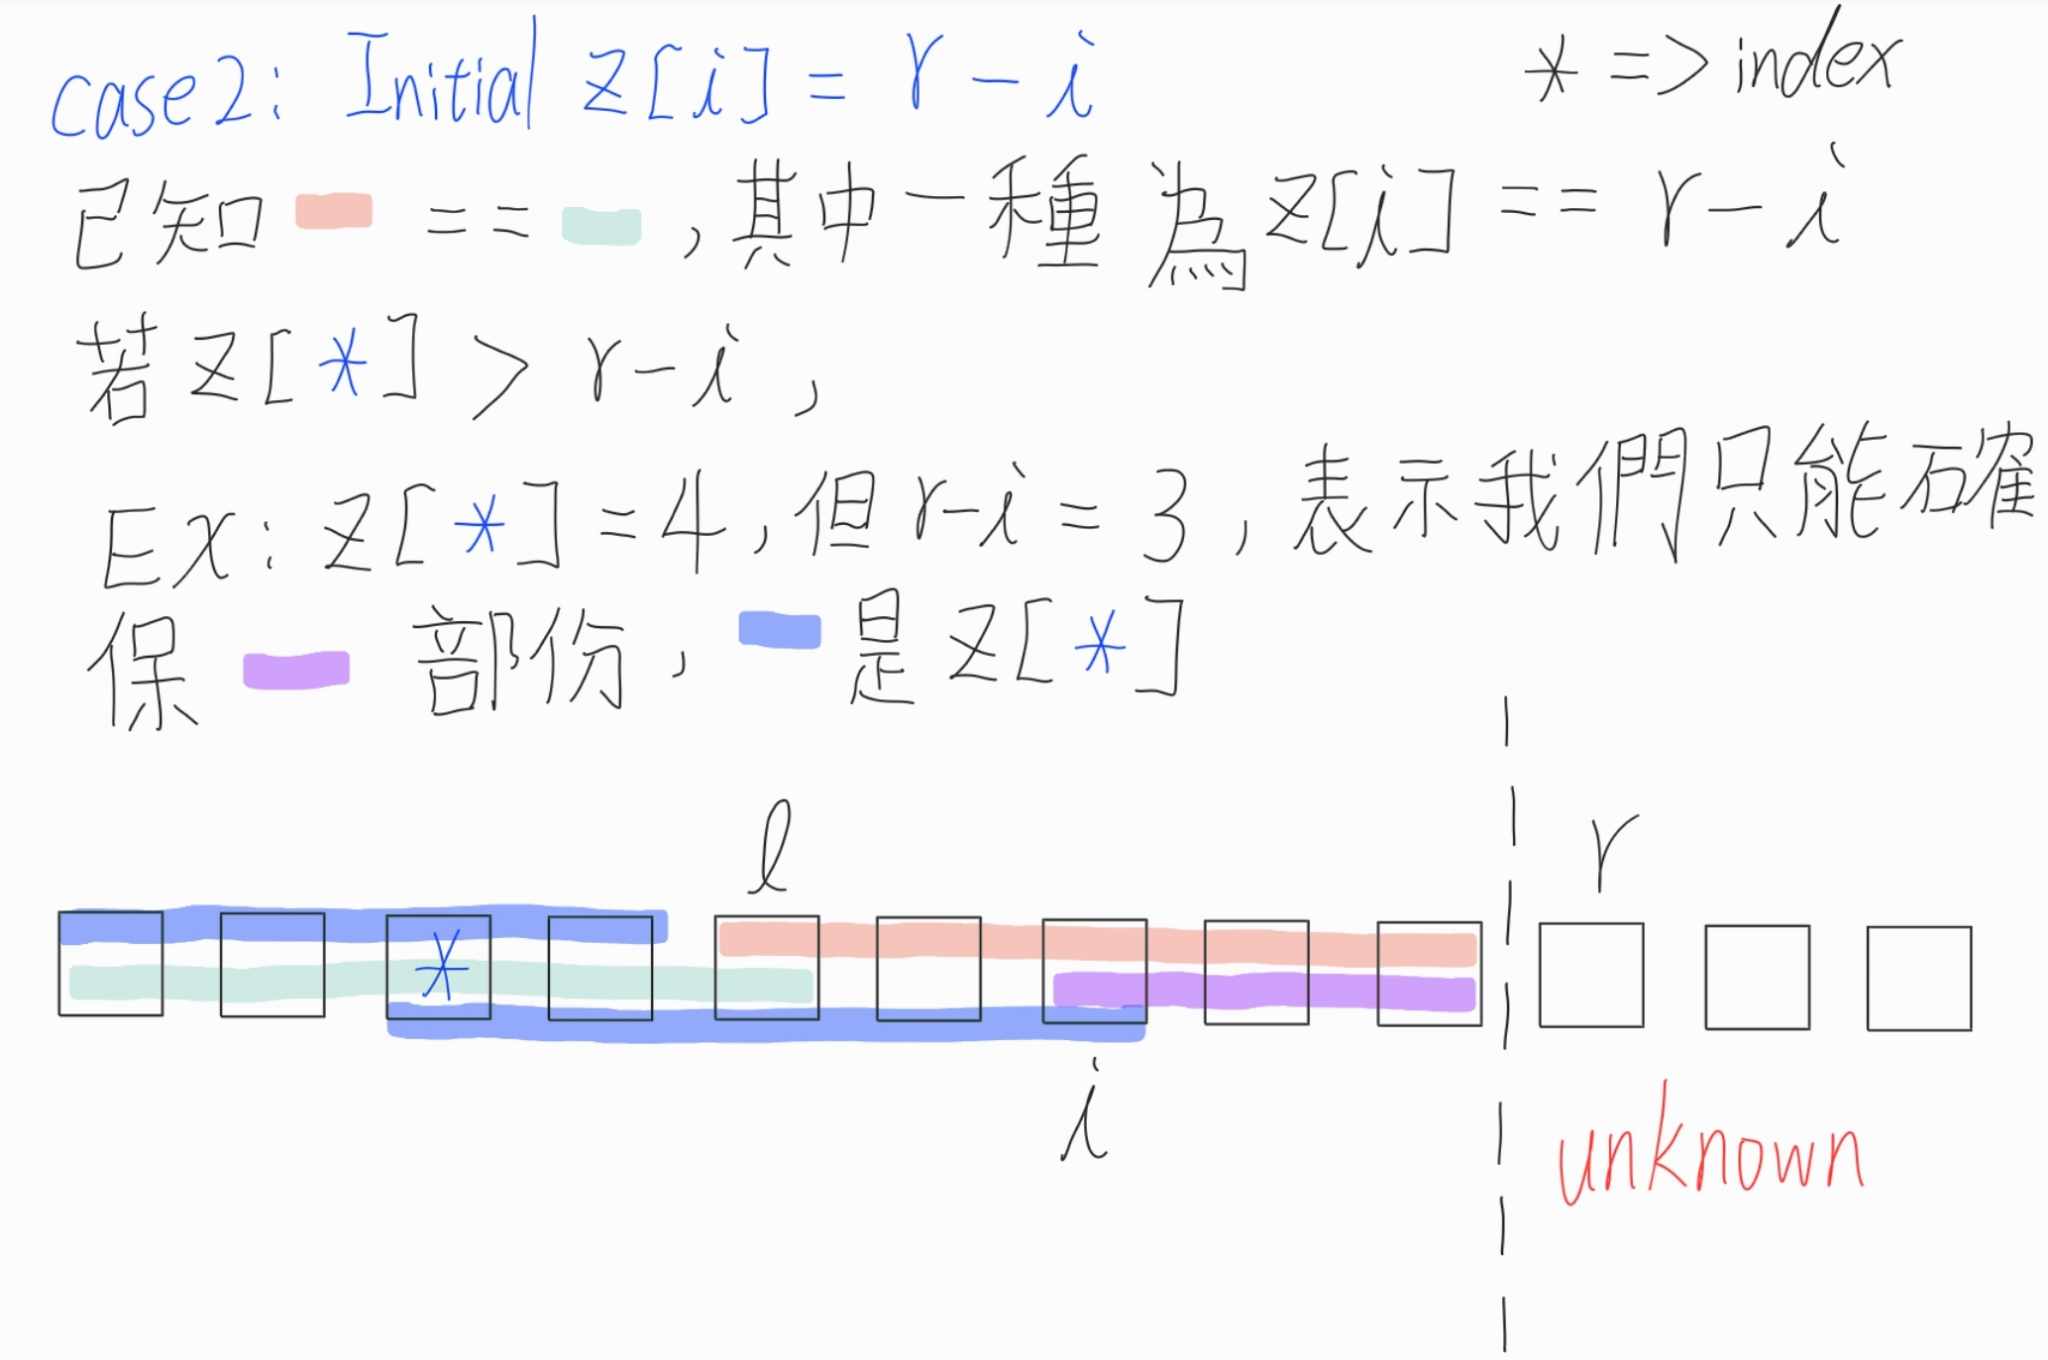 case2: Initial z[i] = r - i
* => index
已知 == , 其中一種為 z[i] == r - i
若 z[*] > r - i ,
Ex: z[*] = 4, 但 r-i = 3, 表示我們只能確
保 部份, 是 z[*]
l
r
*
i
unknown